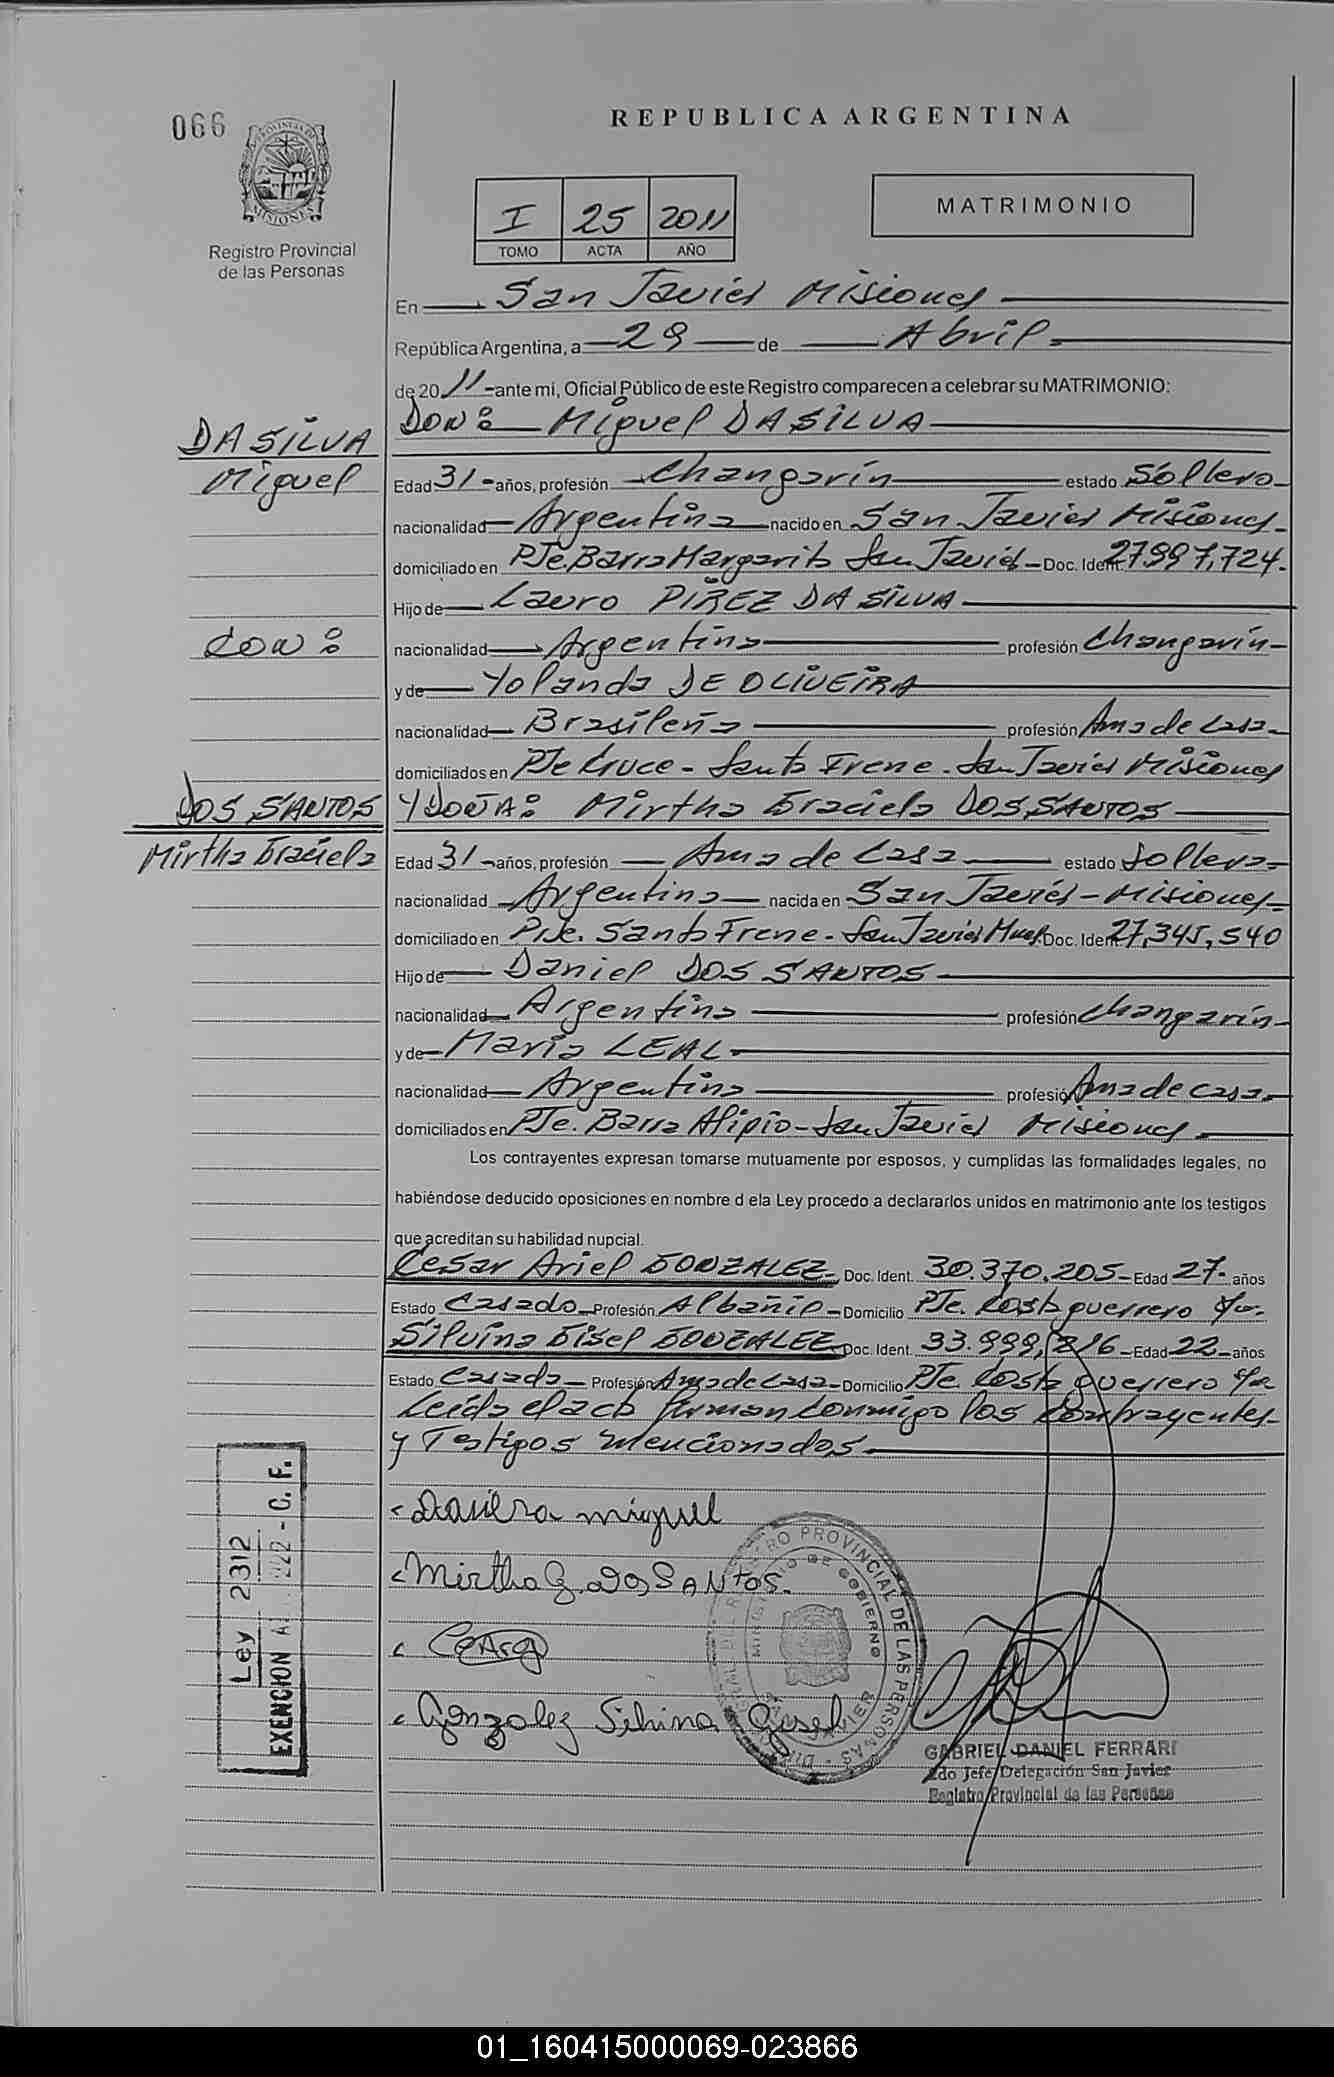 066
REPUBLICA ARGENTINA
PROVINCIA DE
MISIONES
Registro Provincial
de las Personas
I 25 2011
TOMO ACTA AÑO
MATRIMONIO
En San Javier Misiones
República Argentina, a 29 de Abril.
de 2011 - ante mí, Oficial Público de este Registro comparecen a celebrar su MATRIMONIO:
DASILVA
Miguel
Con:
DOS SANTOS
Mirtha Graciela
DON: Miguel DASILVA
Edad 31 - años, profesión Changarín estado Soltero
nacionalidad Argentina nacido en San Javier Misiones.
domiciliado en Pje. Barra Margarita San Javier - Doc. Ident. 27.997.724.
Hijo de Lauro PIREZ DA SILVA
nacionalidad Argentina profesión Changarín
y de Yolanda DE OLIVEIRA
nacionalidad Brasileña profesión Ama de Casa
domiciliados en Pje Cruce - Santa Irene - San Javier Misiones
Y DOÑA: Mirtha Graciela DOS SANTOS
Edad 31 - años, profesión Ama de Casa estado Soltera
nacionalidad Argentina nacida en San Javier - Misiones
domiciliado en Pje. Santa Irene - San Javier Mnes. Doc. Ident. 27.345.540
Hijo de Daniel DOS SANTOS
nacionalidad Argentina profesión Changarín
y de María LEAL
nacionalidad Argentina profesión Ama de casa
domiciliados en Pje. Barra Alipio - San Javier Misiones
Los contrayentes expresan tomarse mutuamente por esposos, y cumplidas las formalidades legales, no
habiéndose deducido oposiciones en nombre d ela Ley procedo a declararlos unidos en matrimonio ante los testigos
que acreditan su habilidad nupcial.
Cesar Ariel GONZALEZ Doc. Ident. 30.370.205 - Edad 27 - años
Estado Casado - Profesión Albañil - Domicilio Pje. Costa guerrero
Silvina Gisel GONZALEZ Doc. Ident. 33.999.816 - Edad 22 - años
Estado Casada - Profesión Ama de Casa - Domicilio Pje. Costa guerrero
Leída el acta firman conmigo los Contrayentes
y Testigos mencionados
Dasilva miguel
Mirtha G. DOS SANTOS.
Gonzalez Silvina Gisel
Ley 2312
EXENCION A 222 - C. F.
REGISTRO PROVINCIAL DE LAS PERSONAS
MINISTERIO DE GOBIERNO
SAN JAVIER
GABRIEL DANIEL FERRARI
2do Jefe Delegación San Javier
Registro Provincial de las Personas
01_160415000069-023866